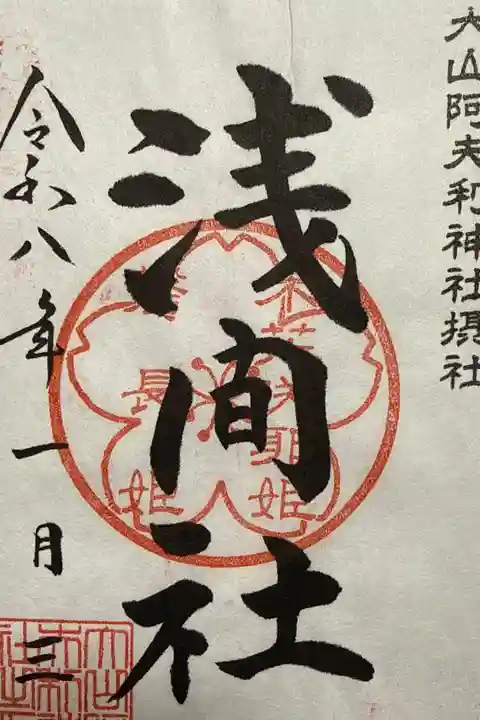 大山阿夫利神社摂社
浅間社
木花咲耶姫
磐長姫
令和八年一月三